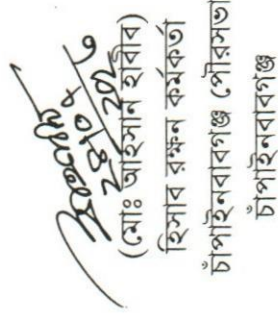 (মোঃ আহসান হাবীব)
হিসাব রক্ষন কর্মকর্তা
চাঁপাইনবাবগঞ্জ পৌরসভা
চাঁপাইনবাবগঞ্জ